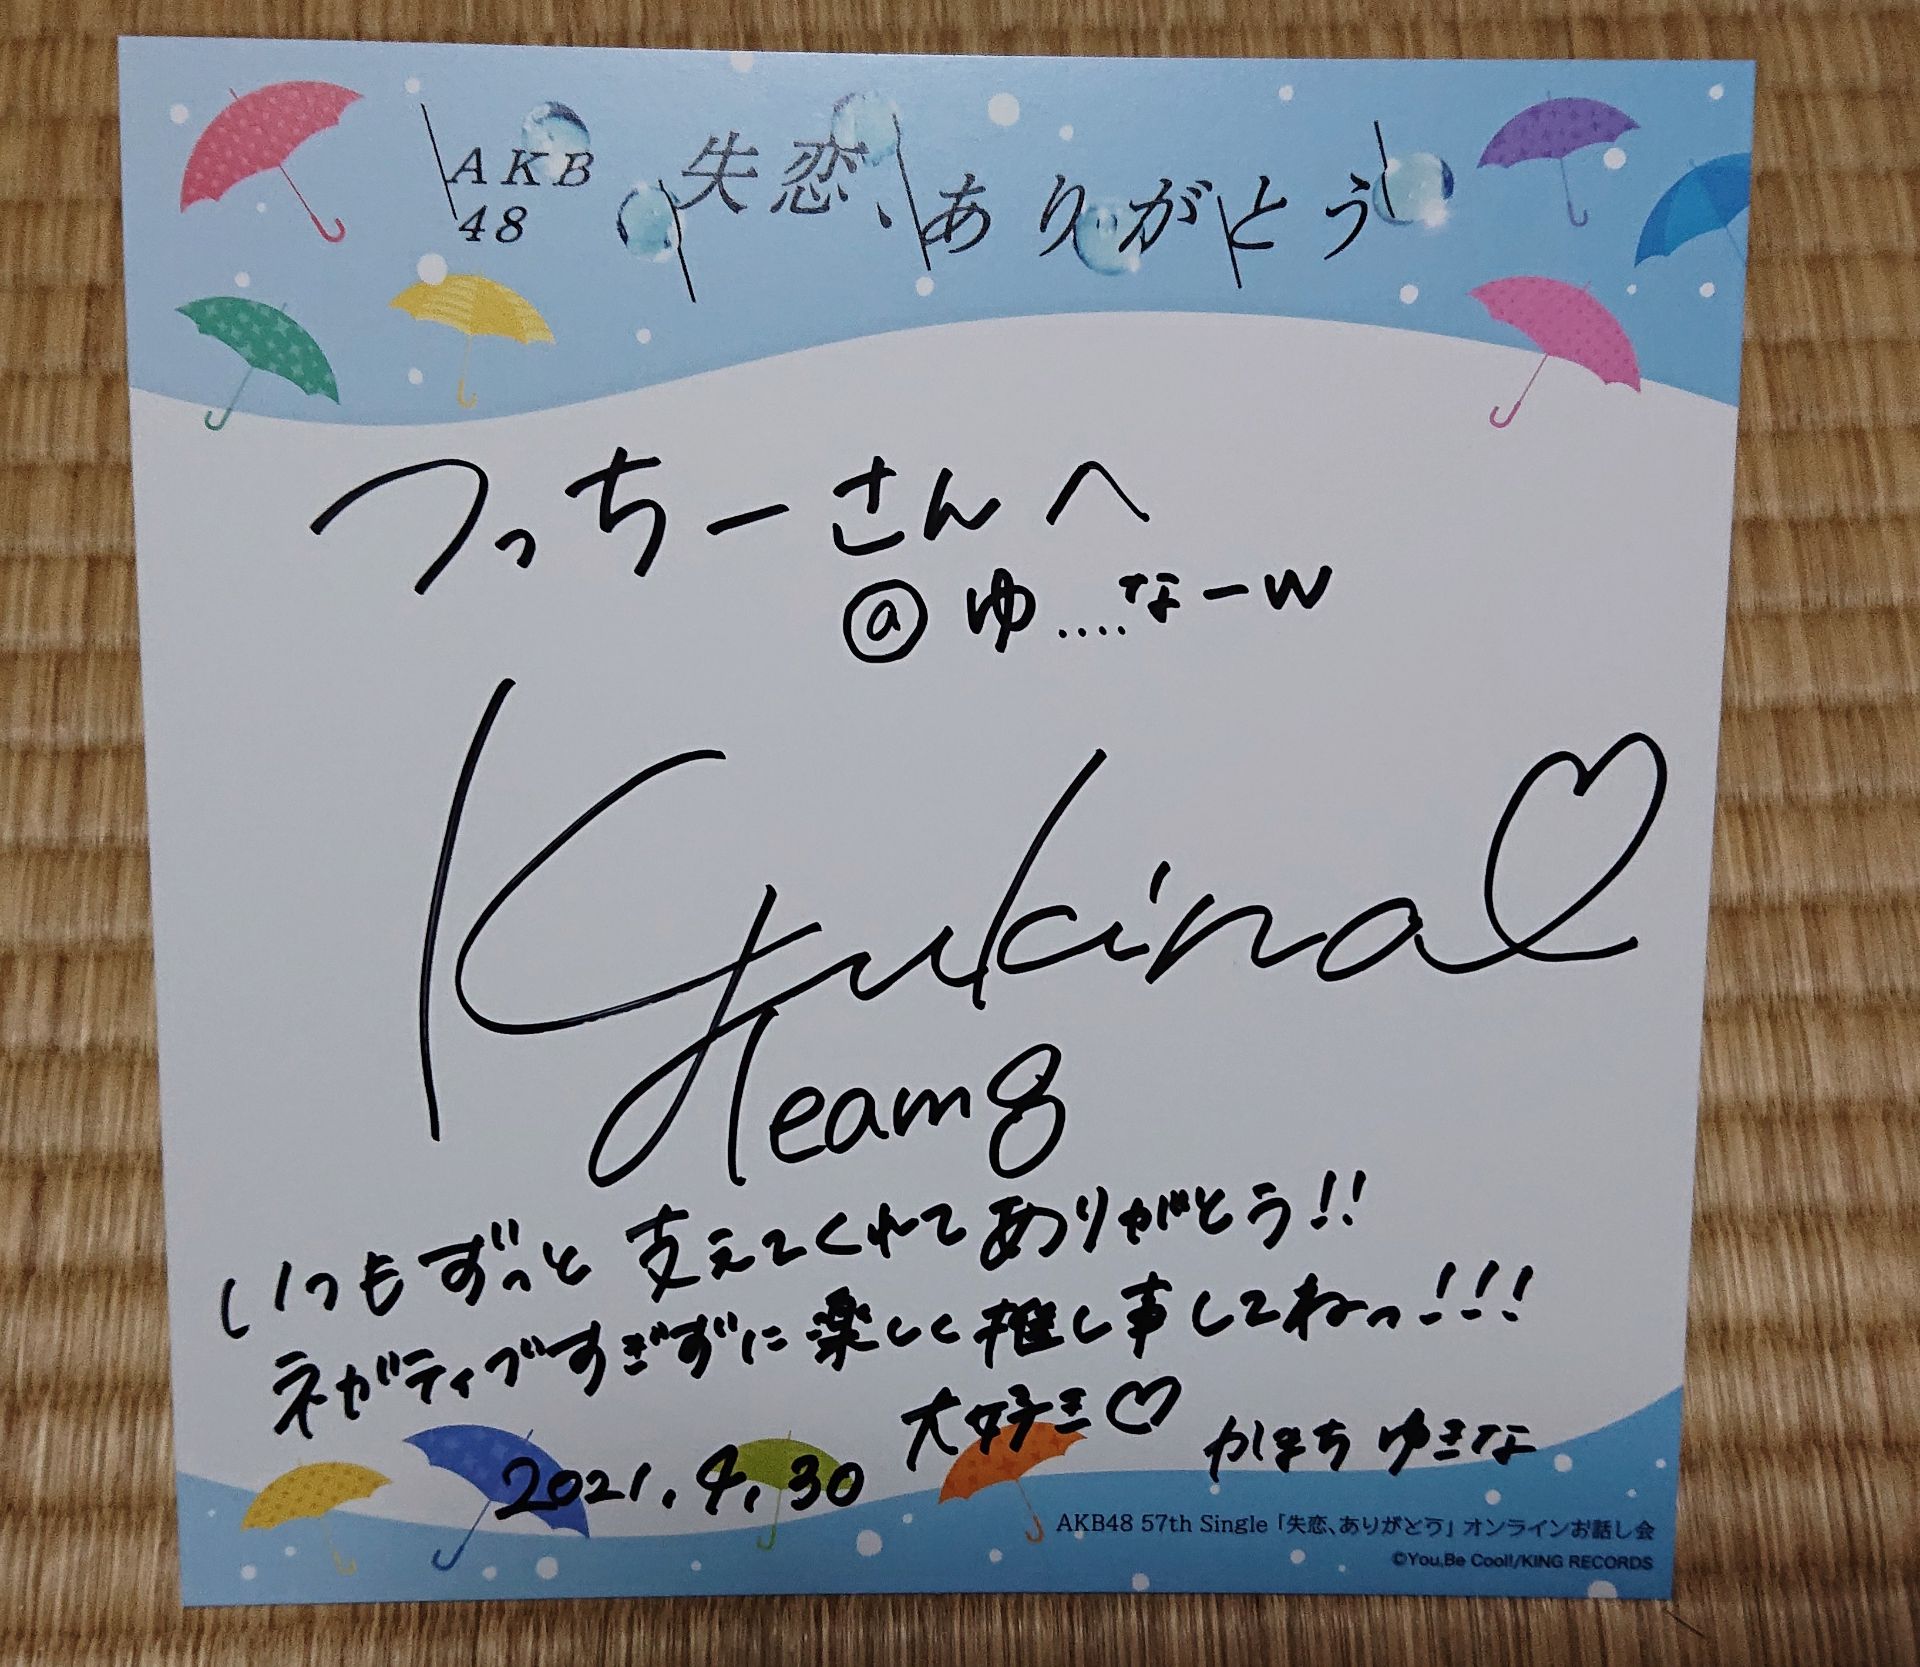 AKB
48
失恋、ありがとう
つっちーさんへ
@ゆ....なーw
Kyukina
Team8
いつもずっと支えてくれてありがとう!!
ネガティブすぎずに楽しく推し事してねっ!!!
大好き♡
かまち ゆきな
2021.4.30
AKB48 57th Single「失恋、ありがとう」オンラインお話し会
©You,Be Cool!/KING RECORDS